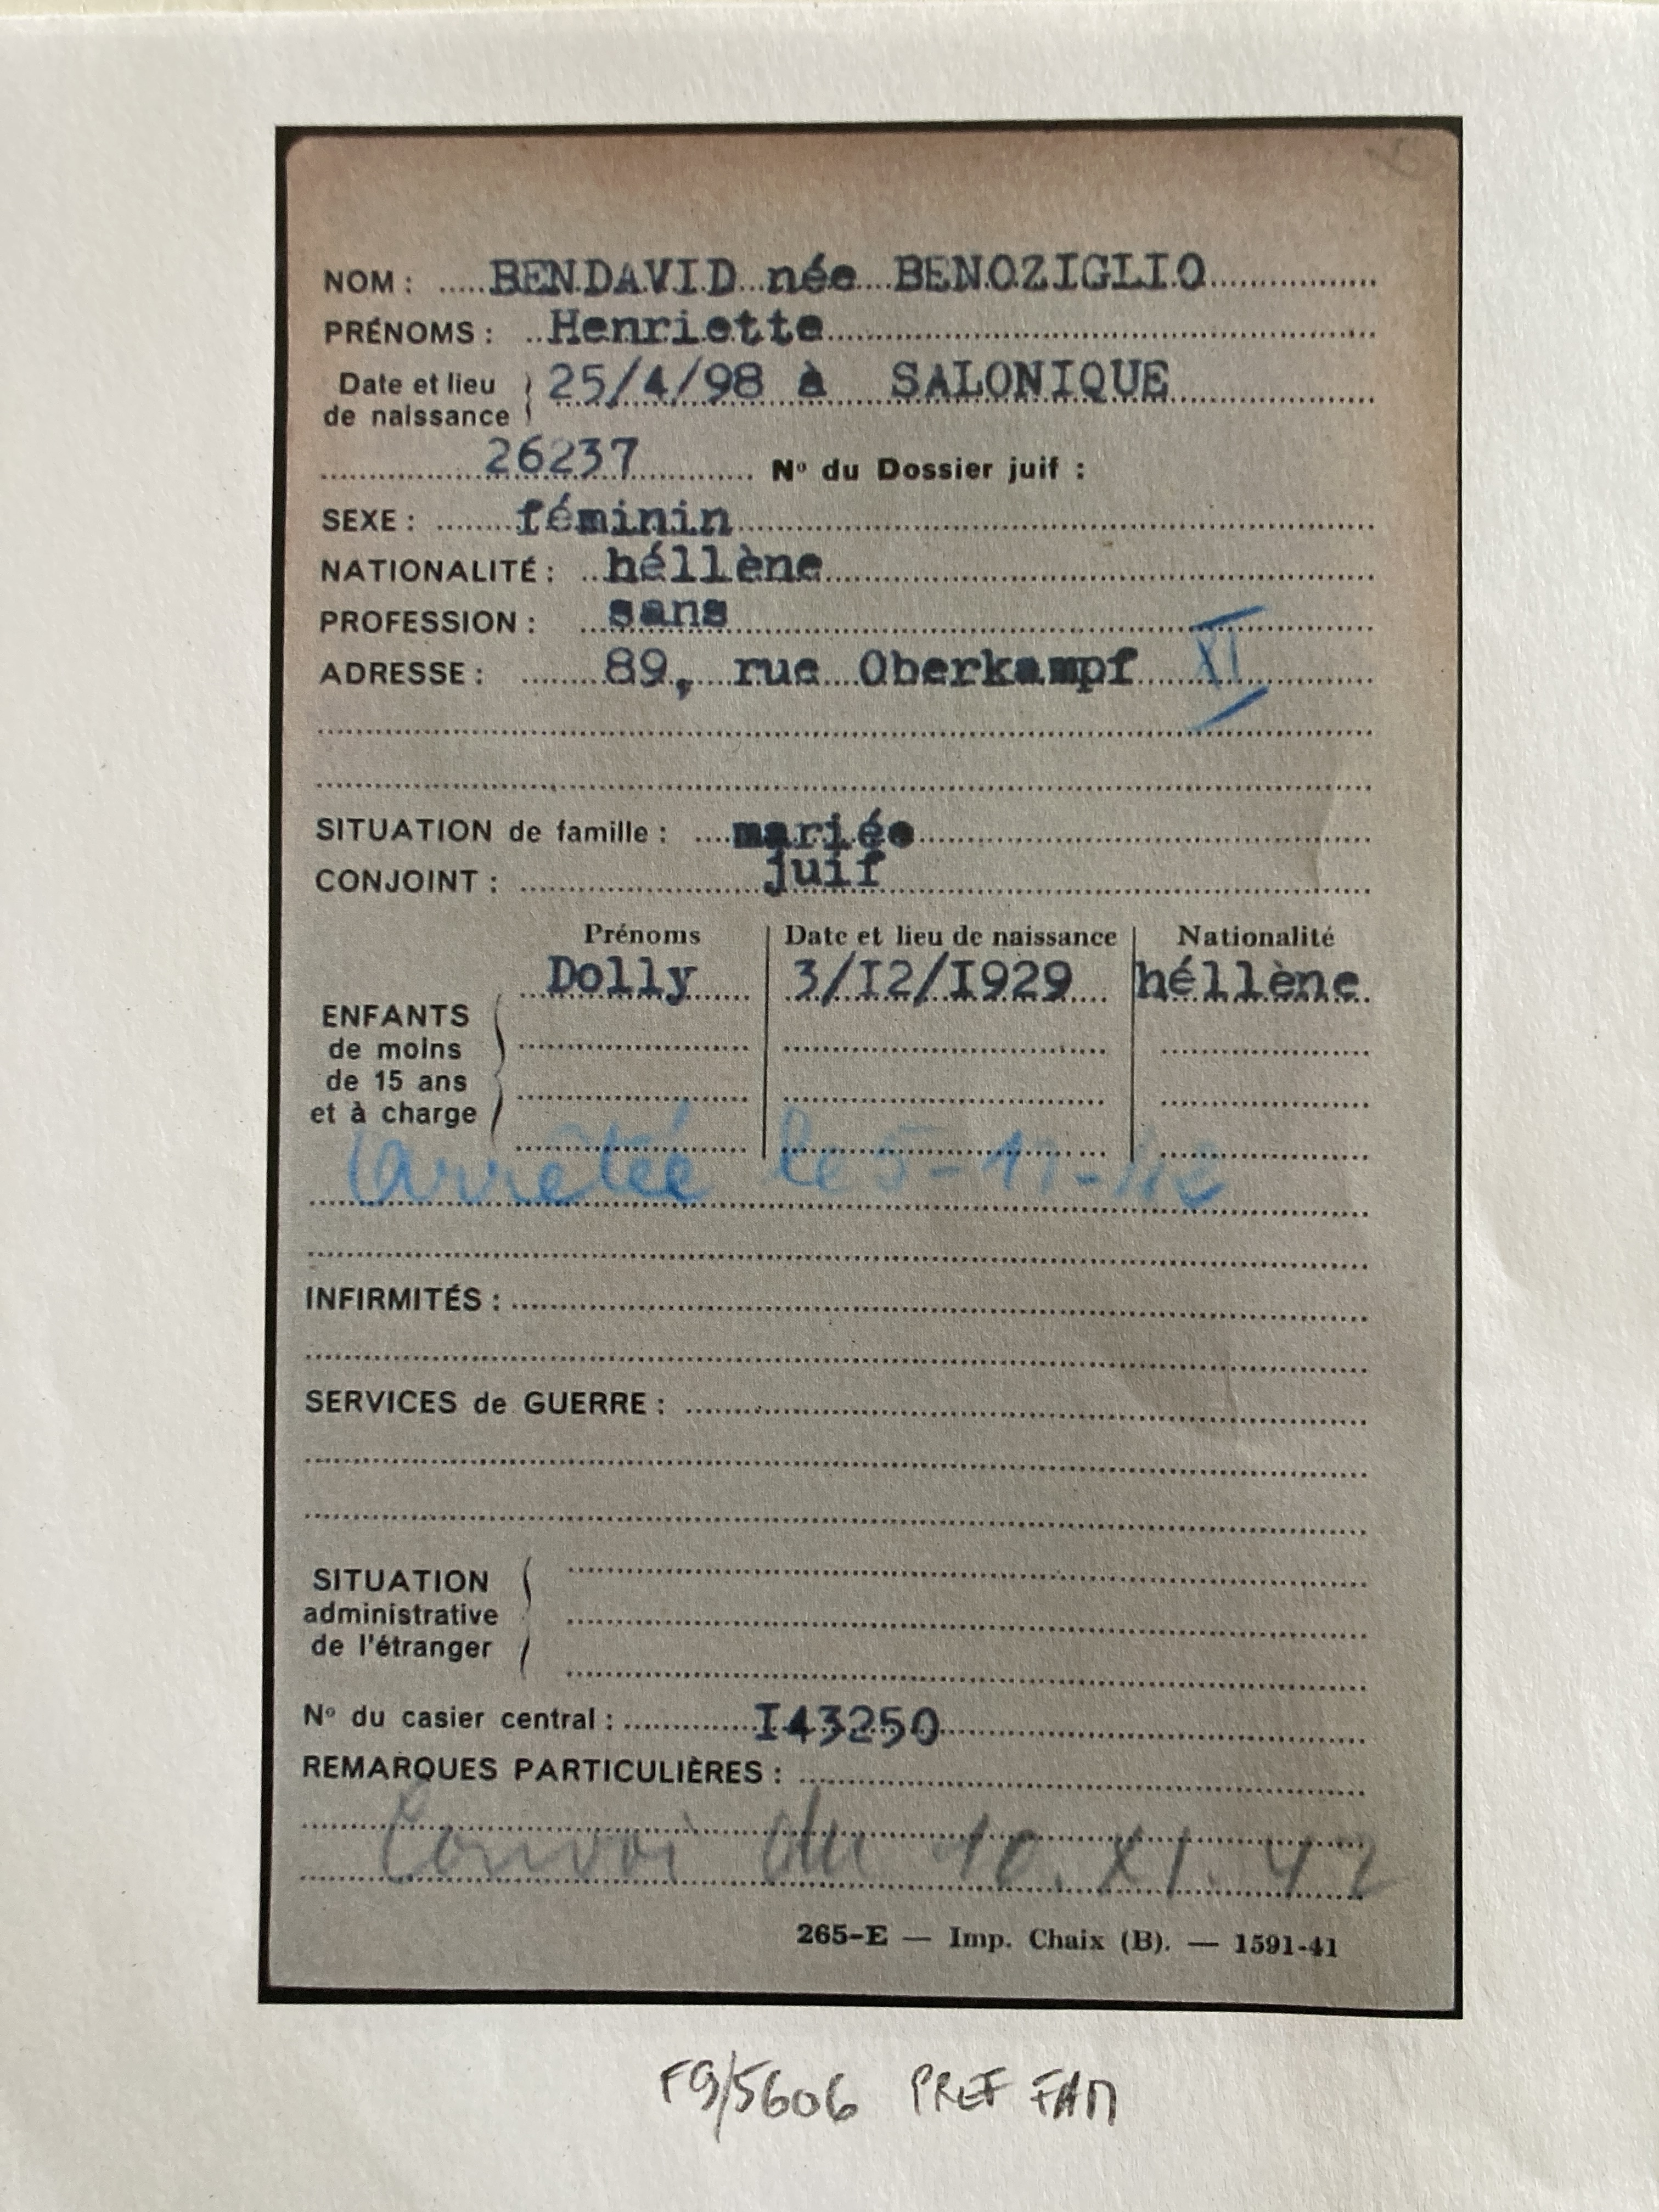 NOM : BENDAVID née BENOZIGLIO
PRÉNOMS : Henriette
Date et lieu de naissance 25/4/98 à SALONIQUE
26237 Nº du Dossier juif :
SEXE : féminin
NATIONALITÉ : héllène
PROFESSION : sans
ADRESSE : 89, rue Oberkampf XI
SITUATION de famille : mariée
CONJOINT : juif
Prénoms Date et lieu de naissance Nationalité
Dolly 3/I2/I929 héllène
ENFANTS
de moins
de 15 ans
et à charge
arrêtée le 5-11-42
INFIRMITÉS :
SERVICES de GUERRE :
SITUATION
administrative
de l'étranger
Nº du casier central : I43250
REMARQUES PARTICULIÈRES :
Convoi du 10.XI.42
265-E — Imp. Chaix (B). — 1591-41
F9/5606 PREF FAM